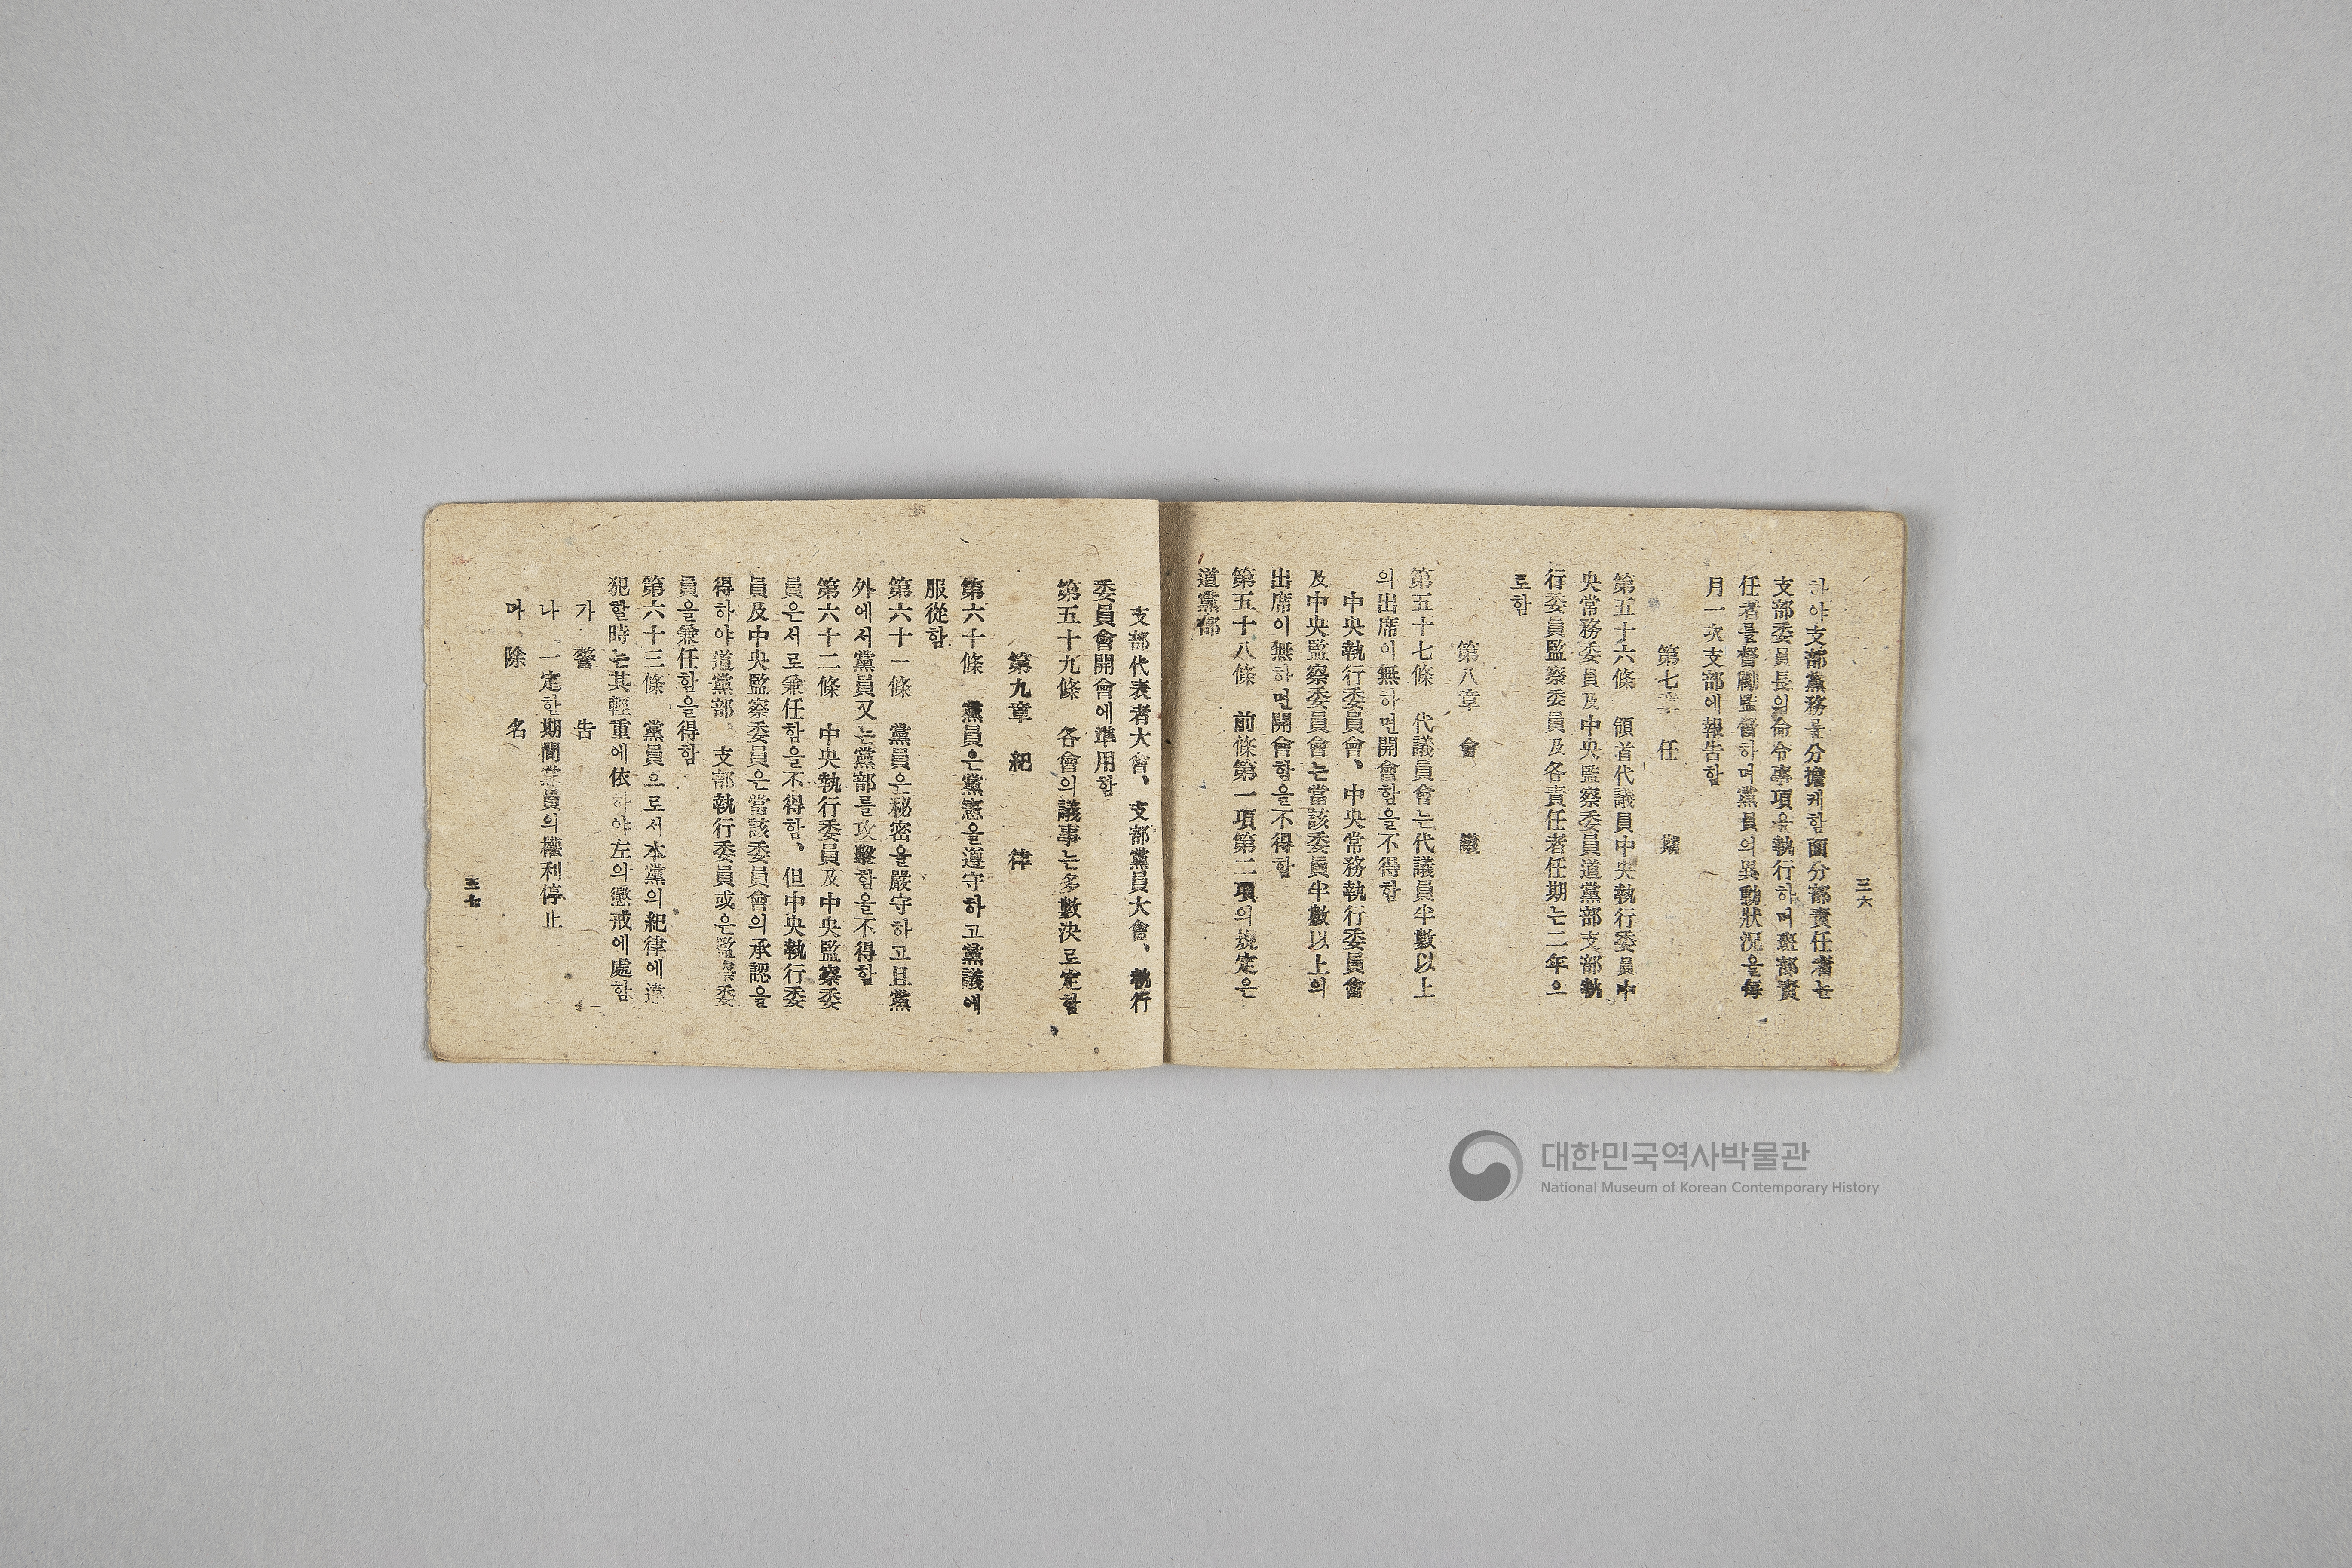 三六
하야支部黨務를分擔케함面分部責任者는
支部委員長의命令事項을執行하며班部責
任者를督勵監督하며黨員의異動狀況을每
月一次支部에報告함
第七章 任 期
第五十六條 領首代議員中央執行委員中
央常務委員及中央監察委員道黨部支部執
行委員監察委員及各責任者任期는二年으
로함
第八章 會 議
第五十七條 代議員會는代議員半數以上
의出席이無하면開會함을不得함
中央執行委員會、中央常務執行委員會
及中央監察委員會는當該委員半數以上의
出席이無하면開會함을不得함
第五十八條 前條第一項第二項의規定은
道黨部
支部代表者大會、支部黨員大會、執行
委員會開會에準用함
第五十九條 各會의議事는多數決로定함
第九章 紀 律
第六十條 黨員은黨憲을遵守하고黨議에
服從함
第六十一條 黨員은秘密을嚴守하고且黨
外에서黨員又는黨部를攻擊함을不得함
第六十二條 中央執行委員及中央監察委
員은서로兼任함을不得함、但中央執行委
員及中央監察委員은當該委員會의承認을
得하야道黨部。支部執行委員或은監察委
員을兼任함을得함
第六十三條 黨員으로서本黨의紀律에違
犯할時는其輕重에依하야左의懲戒에處함
가 警 告
나 一定한期間黨員의權利停止
다 除 名
三七
대한민국역사박물관
National Museum of Korean Contemporary History